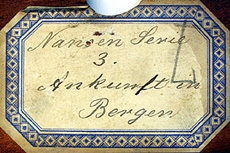 Nansen Serie
3.
Ankunft in
Bergen